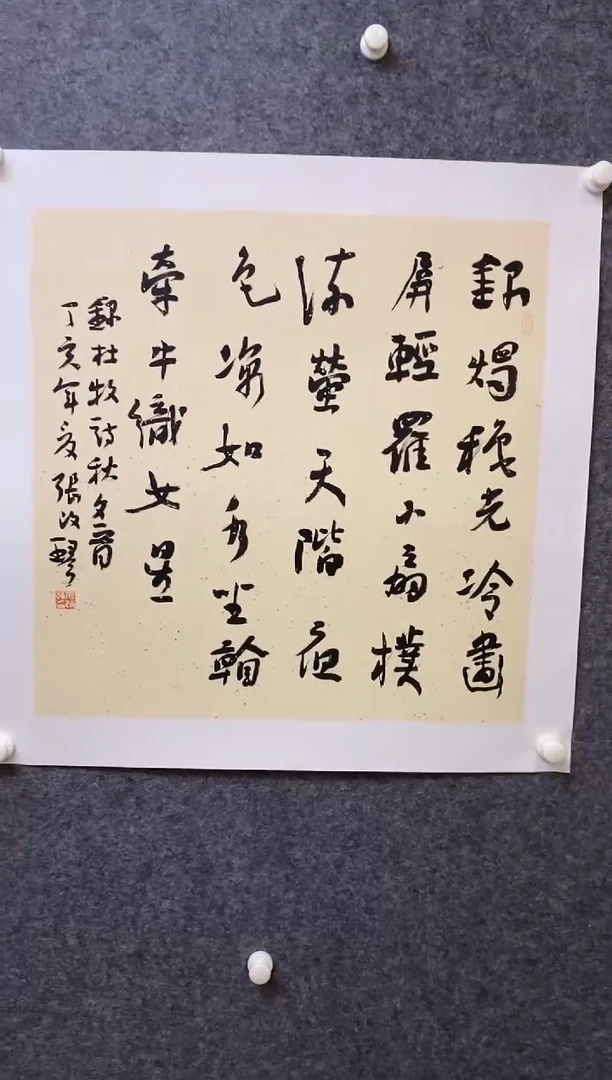 銀燭秋光冷畫
屏輕羅小扇樸
流螢天階夜
色涼如水坐看
牽牛織女星
錄杜牧詩秋夕一首
丁亥年夏張改琴